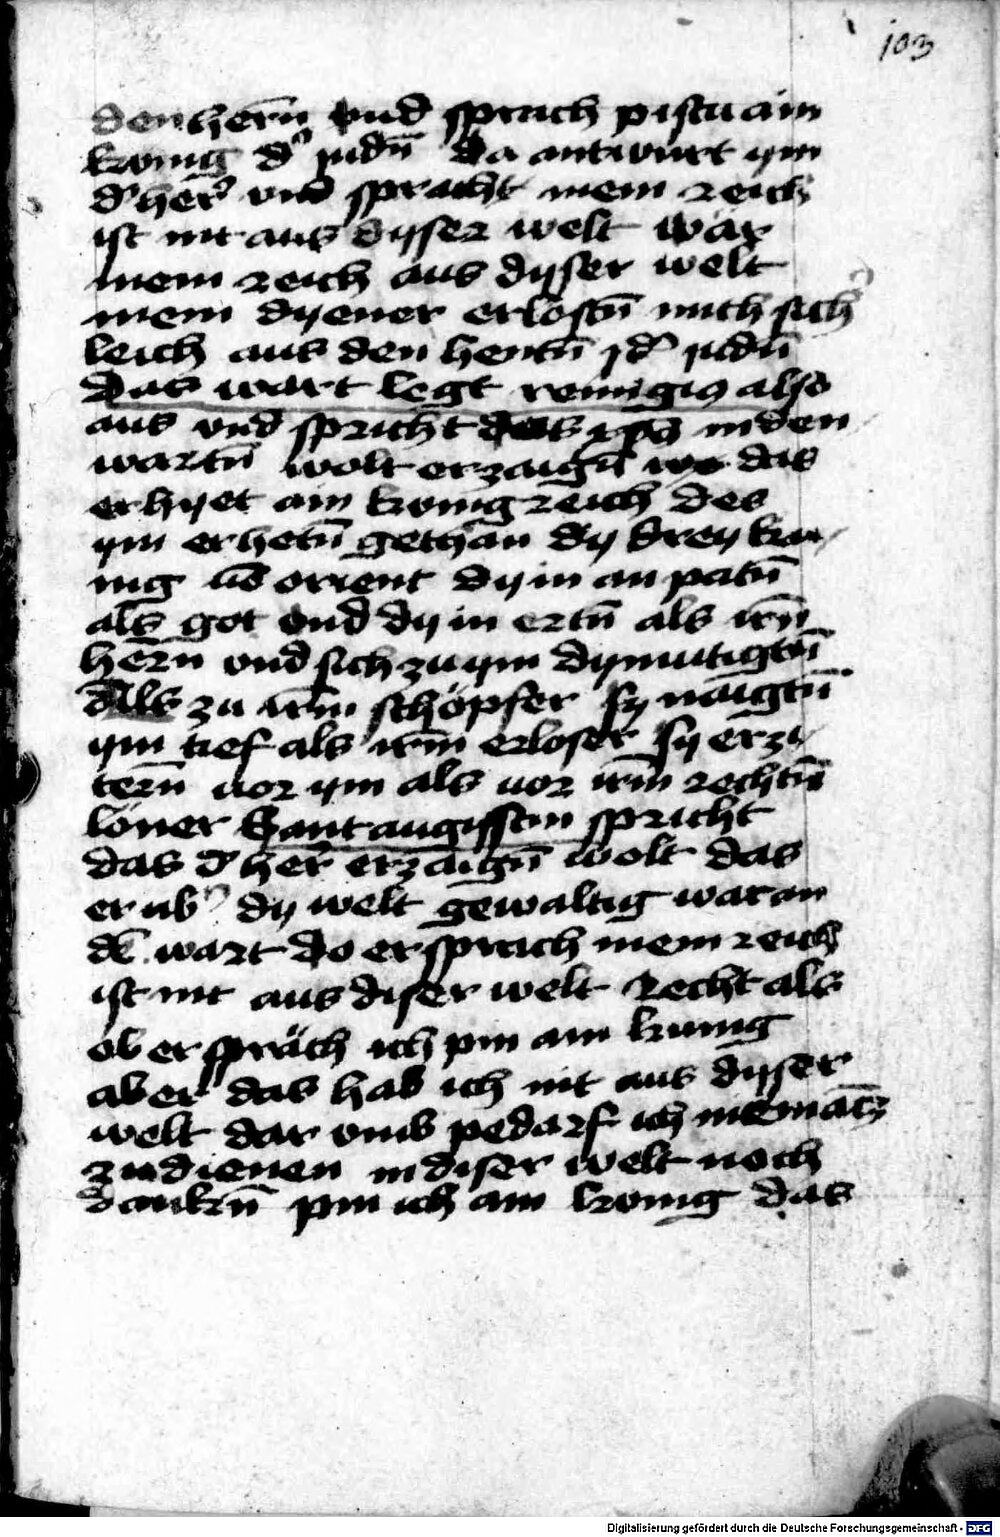 103
den herñ vnd sprach pistu ain
konig d' judñ da antwurt ym
d' her' vnd spracht mein reich
ist nit aus dyser welt wär
mein reich aus dyser welt
mein dyener erlöstñ mich sich'
leich aus den hentñ d' judñ
das wart legt remigiꝰ also
aus vnd spricht das xp̄s in den
wartñ wolt erzaigñ wo das
er hyet ain konigreich des
ym er hetñ gethan dy drey ku
nig orient dy in an patñ
als got vnd dy in ertñ als irñ
herñ vnd sich zu ym dymutigtñ
als zu irm̄ schöpfer sy naigtñ
ym tief als irm̄ erloser sy erzi
terñ vor ym als vor irm̄ rechtñ
löner Sant augisstin spricht
das d' her' erzaigñ wolt das
er ub' dy welt gewaltig war an
dē wart do er sprach mein reich
ist nit aus diser welt Recht als
ob er spräch ich pin ain kunig
aber das hab ich nit aus dyser
welt dar vmb pedarf ich niemācz
zu dienen in diser welt noch
dankñ pin ich ain konig das
Digitalisierung gefördert durch die Deutsche Forschungsgemeinschaft - DFG